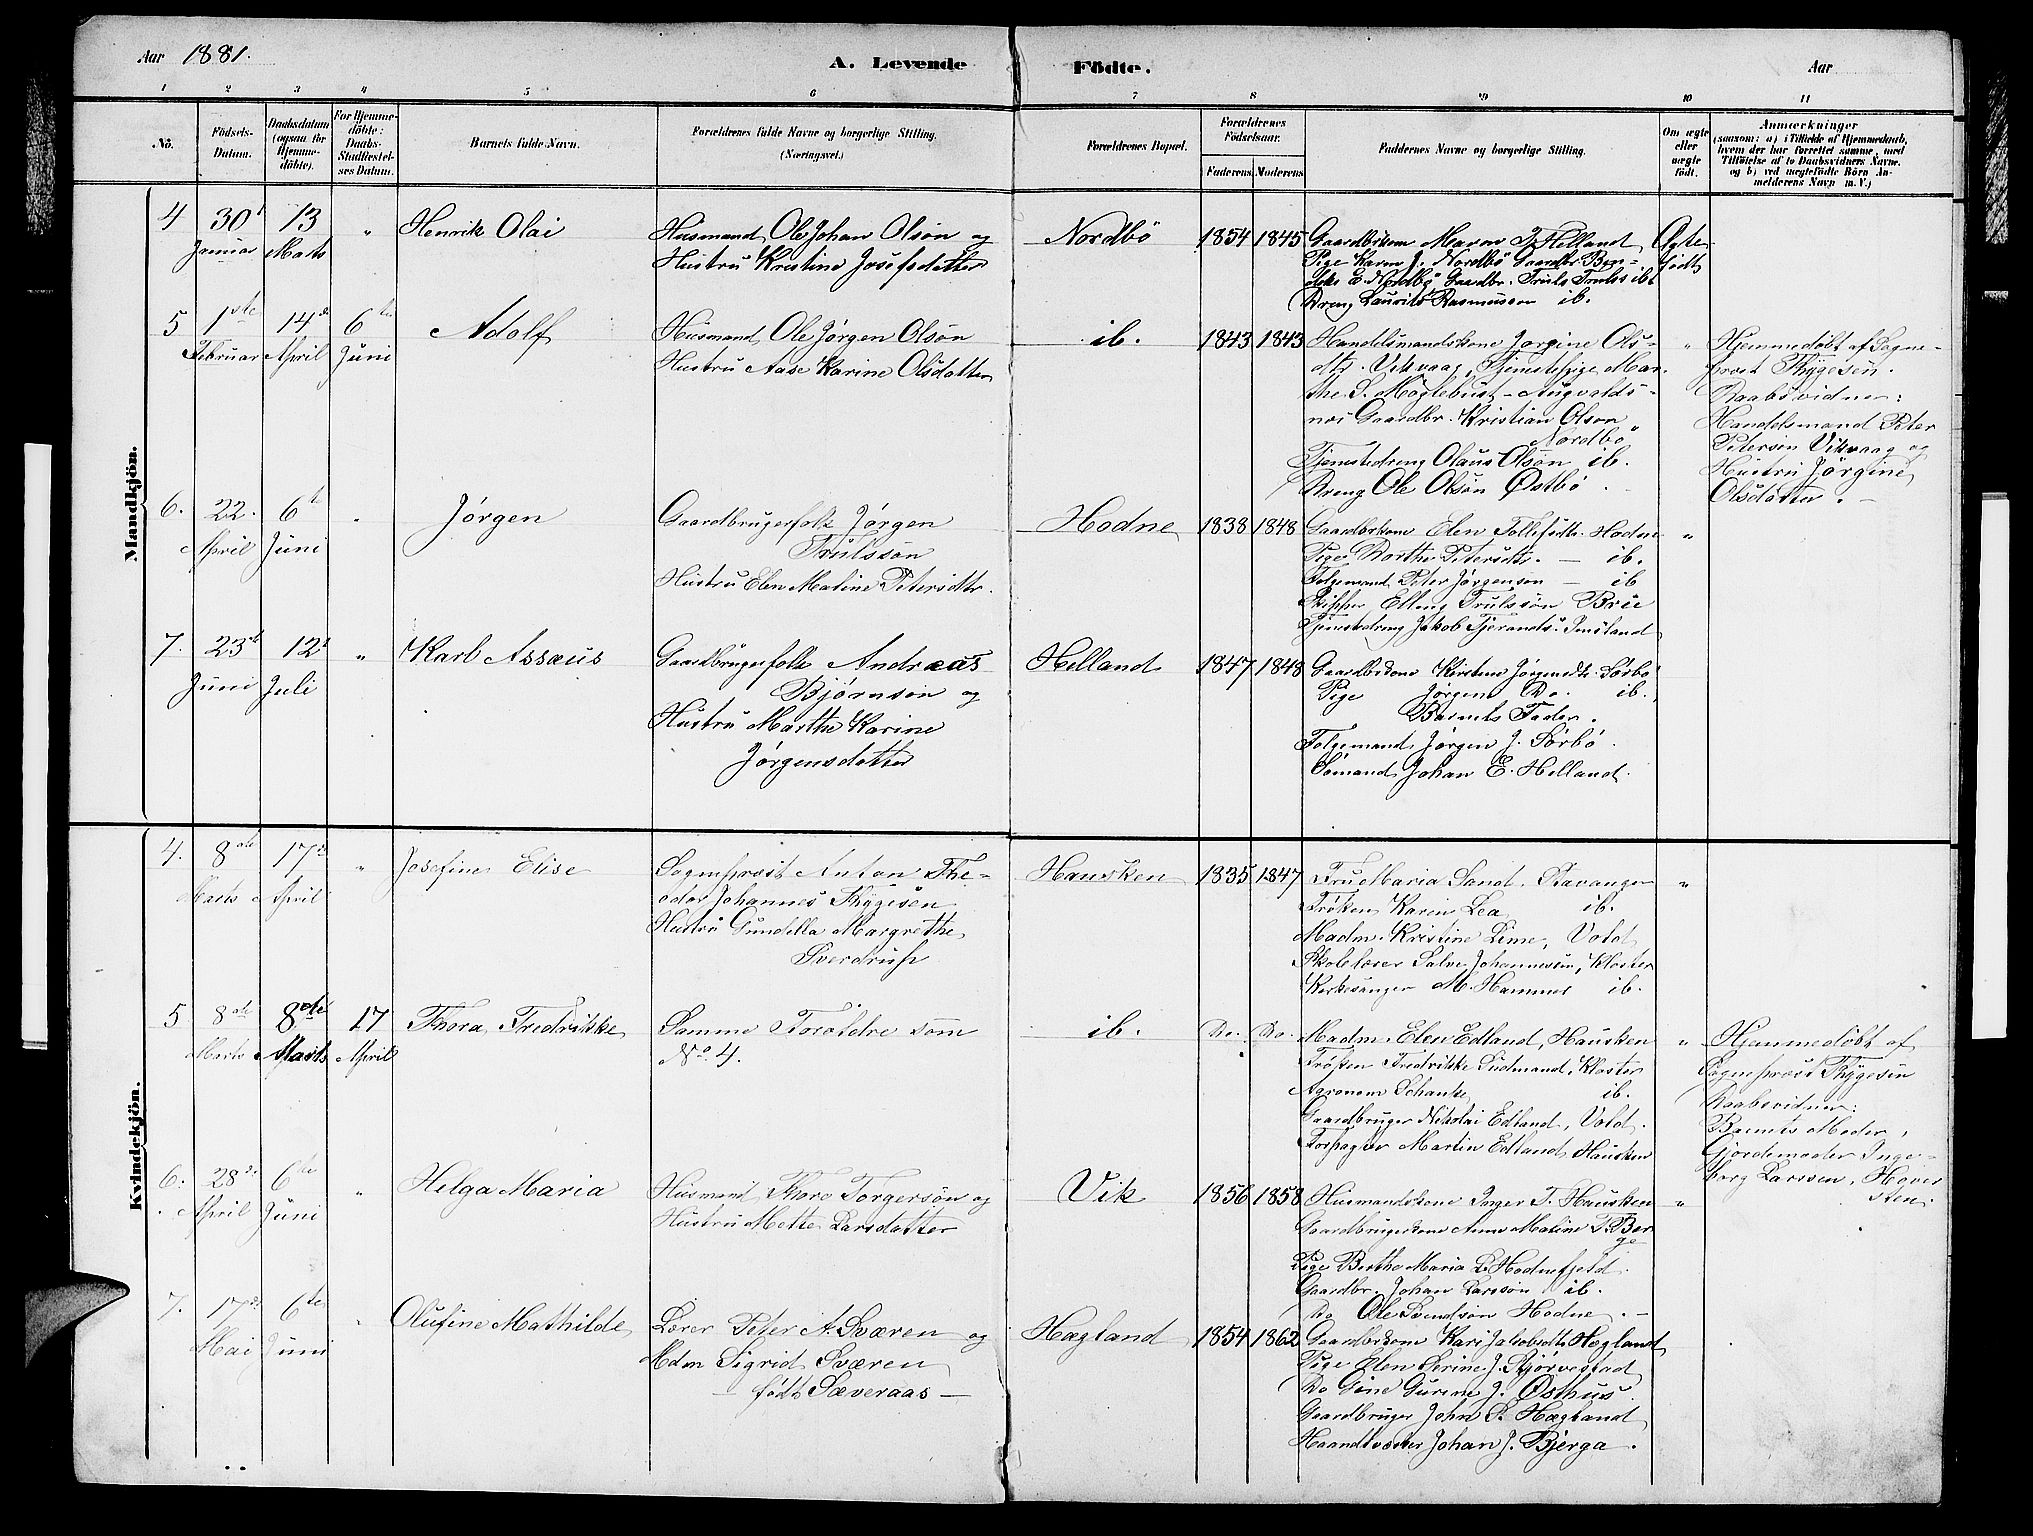 Aar 1881.
A. Levende Födte.
Aar
1 2 3 4 5 6 7 8 9 10 11
No.
Födsels-Datum.
Daabsdatum (ogsaa for Hjemme-döbte).
For Hjemme-döbte: Daabs-Stadfæstel-ses Datum.
Barnets fulde Navn.
Forældrenes fulde Navne og borgerlige Stilling.
(Næringsvei.)
Forældrenes Bopæl.
Forældrenes Födselsaar.
Faderens. Moderens.
Faddernes Navne og borgerlige Stilling.
Om ægte eller uægte födt.
Anmærkninger
(saasom: a) i Tilfælde af Hjemmedaab,
hvem der har forrettet samme, med
Tilföielse af to Daabsvidners Navne.
og b) ved uægtefödte Börn An-
melderens Navn m. V.)
Mandkjön.
4 30t Januar 13 Marts " Henrik Olai
Husmand Ole Johan Olsøn og
Hustru Kristine Josefsdatter
Nordbö 1854 1845
Gaardbrkone Maren J. Helland
Pige Karen J. Nordbö Gaardbr. Ben-
dike E. Nordbö Gaardbr. Truls Trulss ibt
Dreng Laurits Rasmussen ib.
Ægte födt
5 1ste Februar 14de April 6te Juni Adolf
Husmand Ole Jørgen Olsøn
Hustru Aase Karine Olsdatter
ib. 1843 1843
Handelsmandskone Jørgine Ols-
dtr. Vikvaag, Tjenestepige Mar-
the S. Møglebust - Augvalds-
nes Gaardbr. Kristian Olson
Nordbø
Tjenestedreng Olaus Olsøn ib.
Dreng Ole Olsøn Østbø
"
Hjemmedøbt af Sogne-
prest Thygesen.
Daabsvidner:
Handelsmand Peter
Petersen Vikvaag og
Hustru Jørgine
Olsdatter. -
6. 22. April 6t Juni " Jørgen
Gaardbrugerfolk Jørgen
Trulssøn
Hustru Elen Maline Petersdtr.
Hodne 1838 1848
Gaardbrkone Elen Tollefsdtr. Hodne
Pige Dorthe Petersdtr. - ib.
Folgemand Peter Jørgensøn - ib
Skipper Elling Trulssøn Brie
Tjenestedreng Jakob Tjerands. Jensland
"
7. 23de Juni 12t Juli " Karl Assæus
Gaardbrugerfolk Andreas
Bjørnsøn og
Hustru Marthe Karine
Jørgensdatter
Helland 1847 1848
Gaardbrkone Kirstine Jørgensdtr. Sørbø
Pige Jørgine Do. ib.
Barnets Fader.
Folgemand Jørgen J. Sørbø.
Sømand Johan E. Helland.
Kvindekjön.
4. 8de Marts 17de April " Josefine Elise
Sogneprest Anton The-
odor Johannes Thygesen
Hustru Gundella Margrethe
Sverdrup
Hausken 1835 1847
Fru Maria Sand. Stavanger
Frøken Karen Lea ib.
Madm. Kristine Lime, Vold
Skolelærer Salve Johannessen, Kloster
Kirkesanger M. Hammer ib.
"
5 8de Marts 8de Marts 17 April Thora Fredrikke
Samme Forældre som
No 4.
ib. Do. Do.
Madm. Elen Edland, Hausken
Frøken Fredrikke Sudmand, Kloster
Agronom Schanke ib.
Gaardbruger Nikolai Edland, Vold.
Forpagter Martin Edland, Hausken
"
Hjemmedøbt af
Sogneprest Thygesen
Daabsvidner:
Barnets Moder,
Gjordemoder Inge-
borg Larssen, Hover
sten.
6. 28de April 6te Juni " Helga Maria
Husmand Thore Torgersøn og
Hustru Mette Larsdatter
Vik 1856 1858
Husmandskone Inger T. Hausken
Gaardbrugerkone Anne Maline T. Ber
ge
Pige Berthe Maria L. Hodnefjeld.
Gaardbr. Johan Larssøn ib.
Do Ole Svendsøn Hodne. -
"
7. 17de Mai 6te Juni " Olufine Mathilde
Lærer Peter A. Sværen og
Mdm Sigrid Sværen
- født Sæveraas -
Hægland 1854 1862
Gaardbrkone Kari Jakobsdtr Hegland
Pige Elen Serine J. Bjørvestad
Do Gine Gurine J. Østhus.
Gaardbruger John S. Hægland
Haandtværker Johan J. Bjerga.